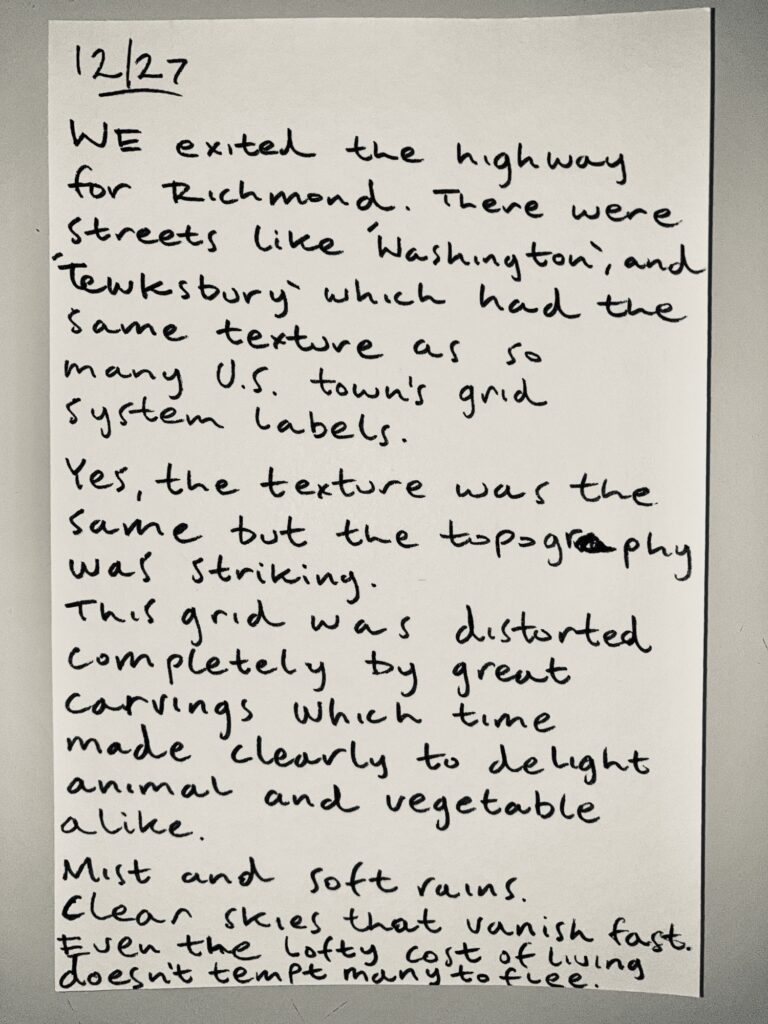 12/27
WE exited the highway
for Richmond. There were
streets like 'Washington', and
'Tewksbury' which had the
same texture as so
many U.S. town's grid
system labels.
Yes, the texture was the
same but the topography
was striking.
This grid was distorted
completely by great
carvings which time
made clearly to delight
animal and vegetable
alike.
Mist and soft rains.
Clear skies that vanish fast.
Even the lofty cost of living
doesn't tempt many to flee.